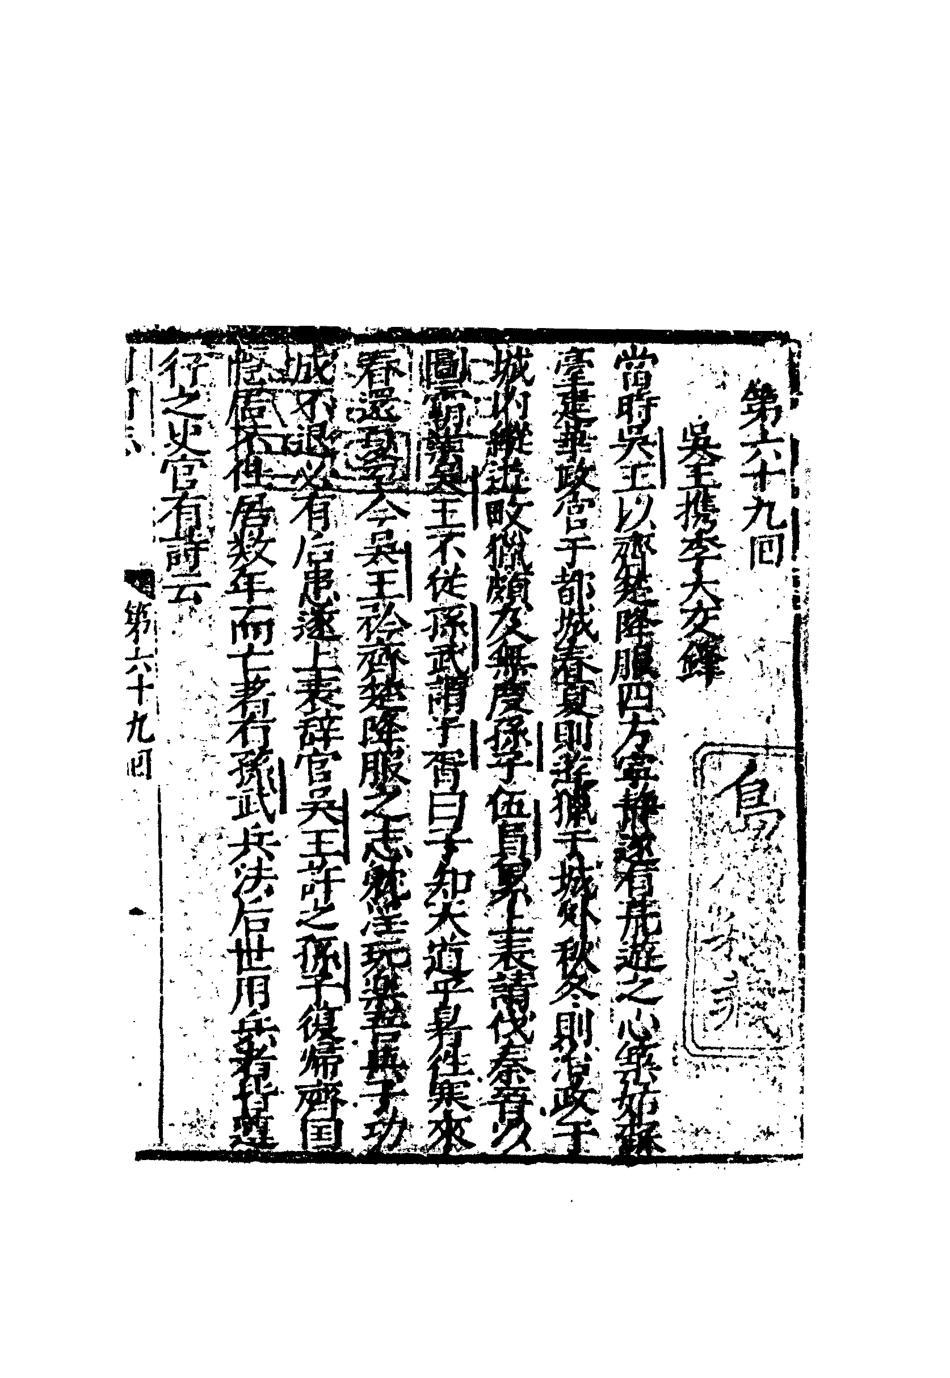 第六十九回
吳王携李大交鋒
當時吳王以齊楚降服四方寧静遂有荒遊之心築姑蘇
臺建華政宫于都城春夏則遊猟于城外秋冬則治政于
城内縱遊畋獵頗久無度孫子伍員累上表請伐秦晋以
圖霸業吳王不從孫武謂子胥曰子知天道乎暑往寒來
春還夏至今吳王矜齊楚降服之志躭淫玩樂吾與子功
成不退必有后患遂上表辞官吳王許之孫子復歸齊国
隱居不仕居数年而亡著有孫武兵法后世用兵者皆遵
行之史官有詩云
第六十九回